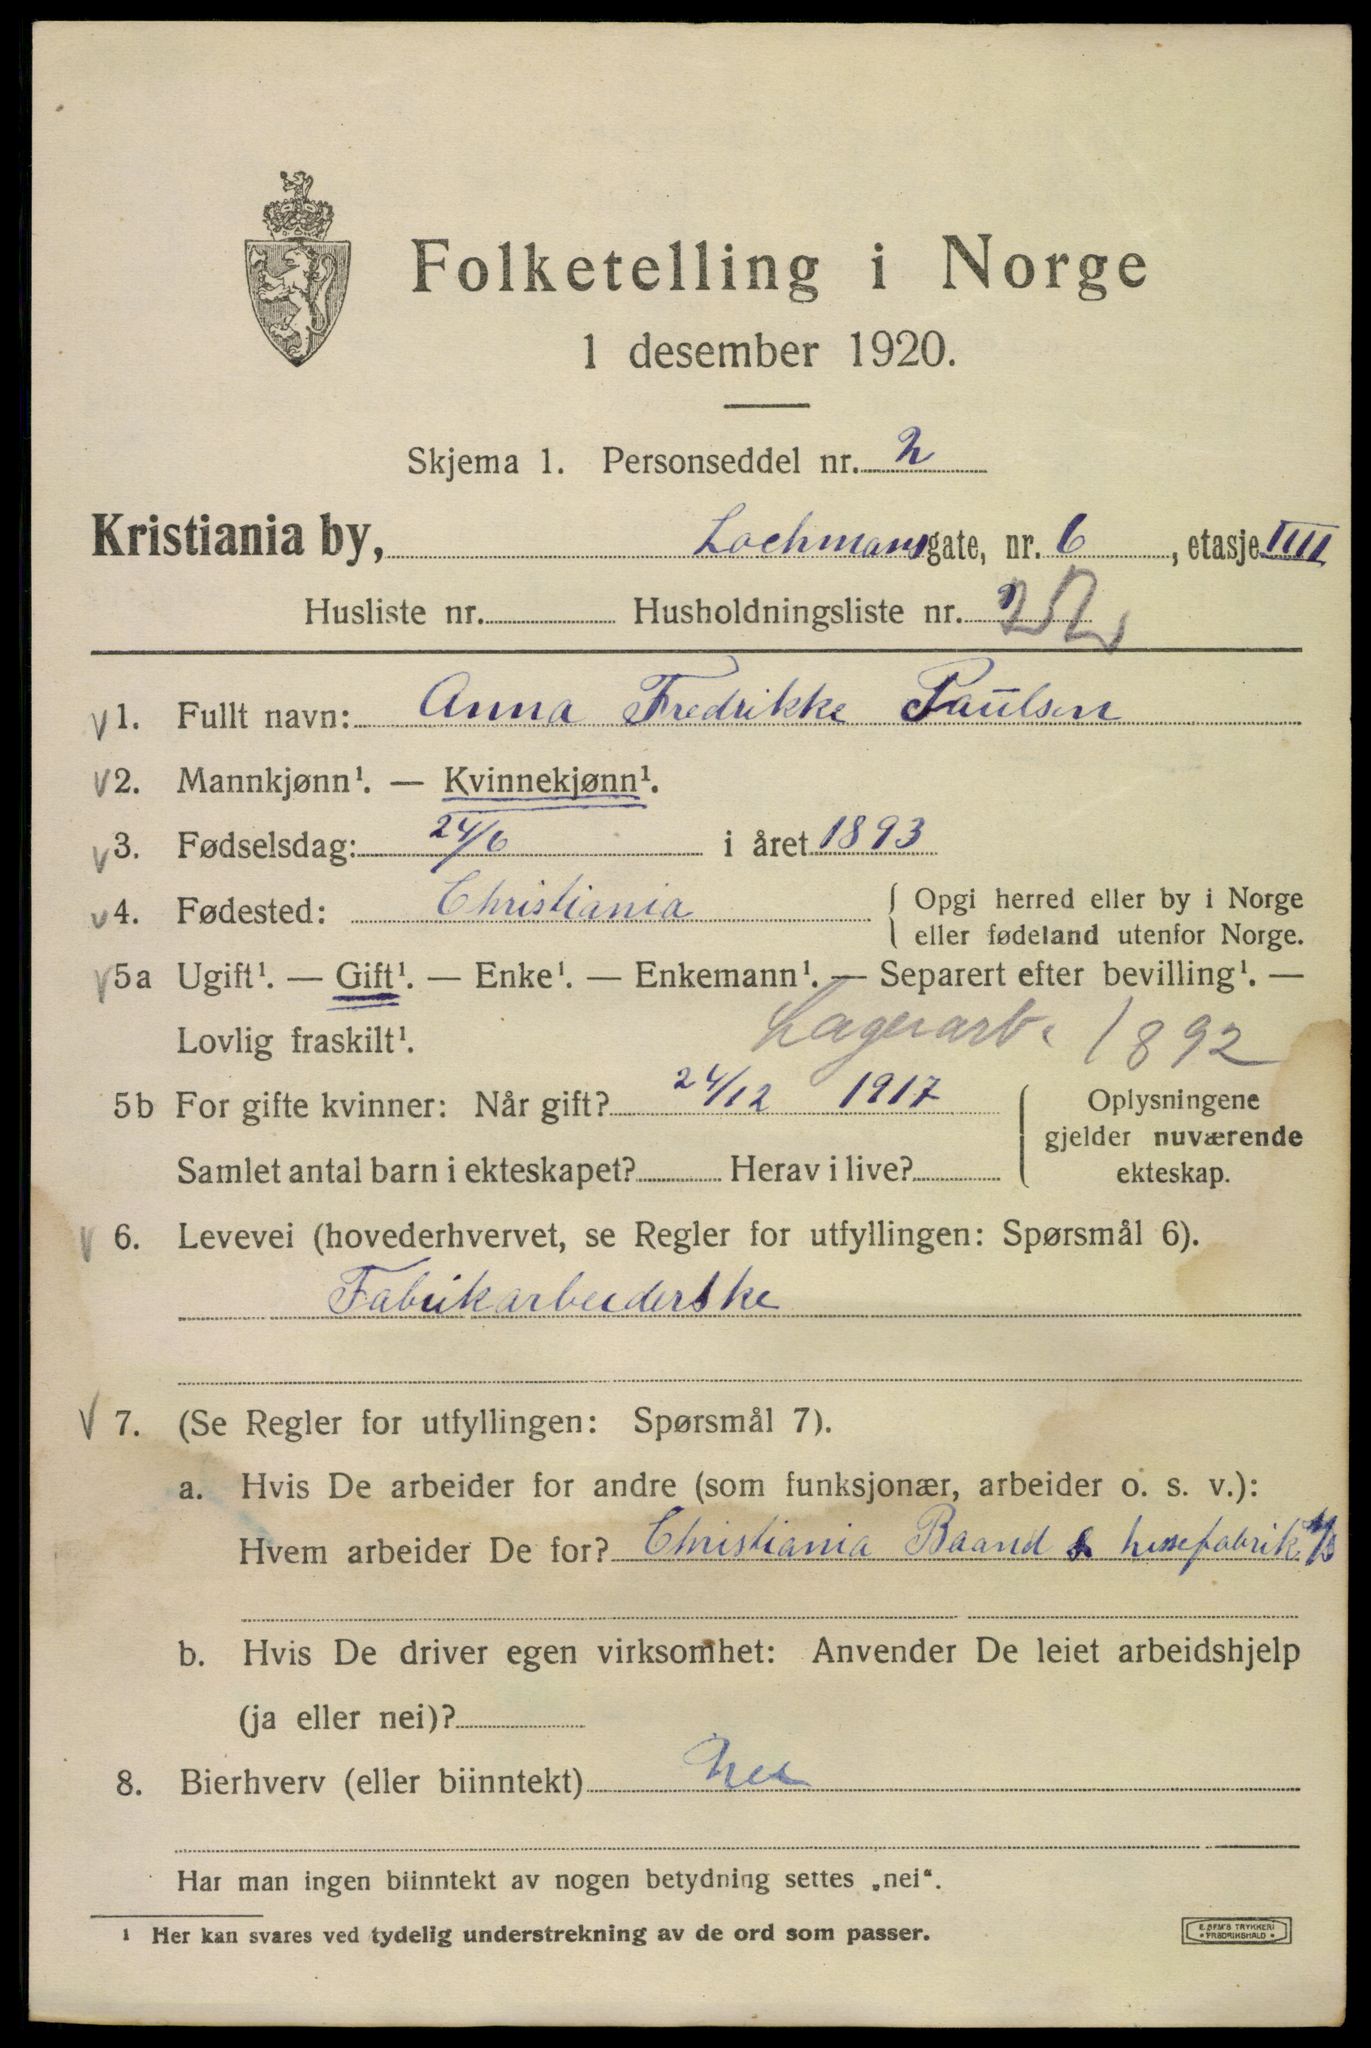 Folketelling i Norge
1 desember 1920.
Skjema 1. Personseddel nr. 2
Kristiania by, Lochmansgate, nr. 6, etasje IIII
Husliste nr. Husholdningsliste nr. 22
v 1. Fullt navn: Anna Fredrikke Paulsen
v 2. Mannkjønn¹. — Kvinnekjønn¹.
v 3. Fødselsdag: 24/6 i året 1893
v 4. Fødested: Christiania { Opgi herred eller by i Norge
eller fødeland utenfor Norge.
v 5a Ugift¹. — Gift¹. — Enke¹. — Enkemann¹. — Separert efter bevilling¹. —
Lovlig fraskilt¹. Lagerarb. 1892
5b For gifte kvinner: Når gift? 24/12 1917 { Oplysningene
gjelder nuværende
Samlet antal barn i ekteskapet? Herav i live? ekteskap.
v 6. Levevei (hovederhvervet, se Regler for utfyllingen: Spørsmål 6).
Fabrikarbeiderske
v 7. (Se Regler for utfyllingen: Spørsmål 7).
a. Hvis De arbeider for andre (som funksjonær, arbeider o. s. v.):
Hvem arbeider De for? Christiania Baand & lissefabrik A/S
b. Hvis De driver egen virksomhet: Anvender De leiet arbeidshjelp
(ja eller nei)?
8. Bierhverv (eller biinntekt) Nei
Har man ingen biinntekt av nogen betydning settes „nei“.
¹ Her kan svares ved tydelig understrekning av de ord som passer.
E. SEM'S TRYKKERI
• FREDRIKSHALD •